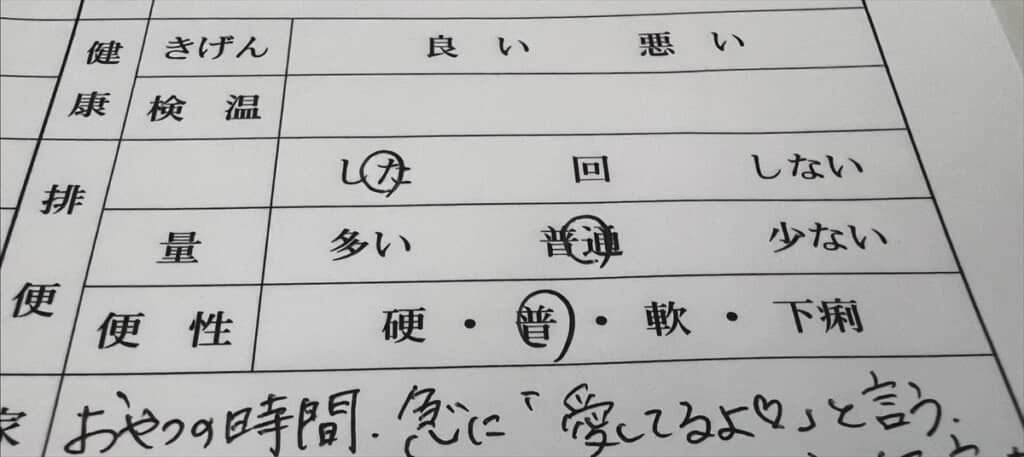 健康 きげん 良い 悪い
検温
排便 した 回 しない
量 多い 普通 少ない
便性 硬・普・軟・下痢
おやつの時間.急に「愛してるよ♡」と言う.